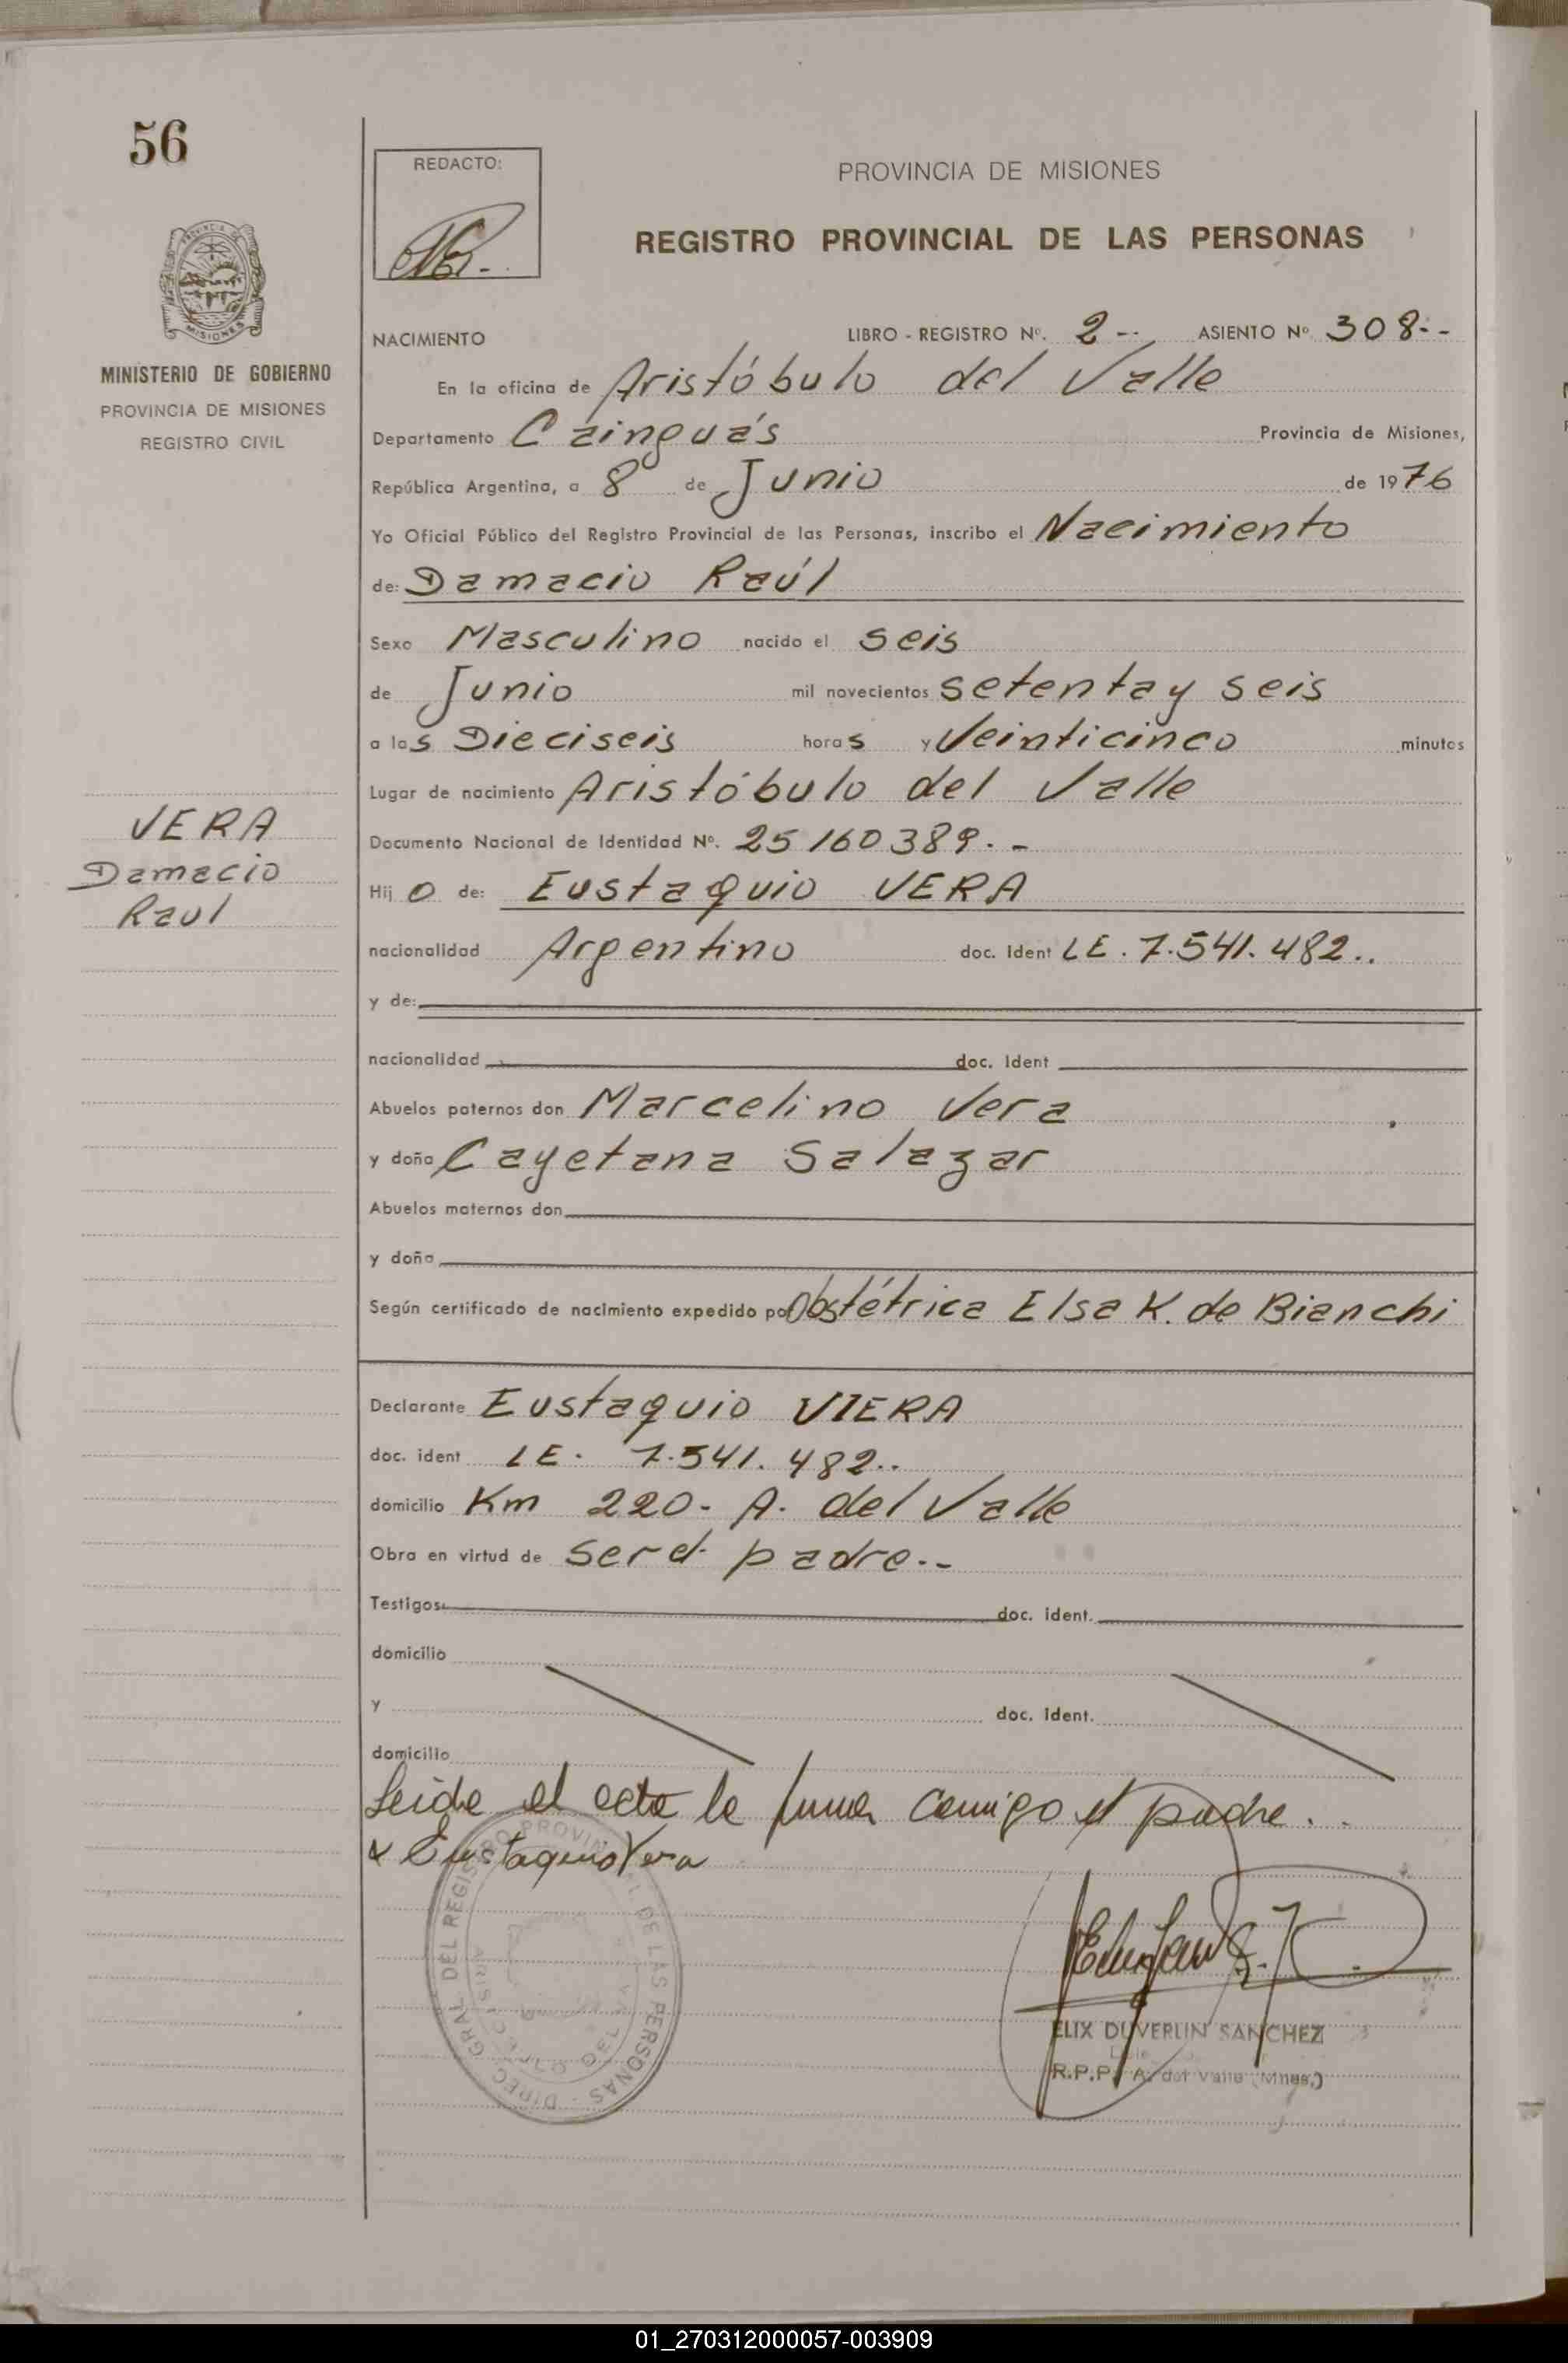 56
REDACTO:
PROVINCIA DE MISIONES
REGISTRO PROVINCIAL DE LAS PERSONAS
MISIONES
MINISTERIO DE GOBIERNO
PROVINCIA DE MISIONES
REGISTRO CIVIL
NACIMIENTO LIBRO - REGISTRO Nº. 2-- ASIENTO Nº 308.--
En la oficina de Aristóbulo del Valle
Departamento Cainguás Provincia de Misiones,
República Argentina, a 8 de Junio de 1976
Yo Oficial Público del Registro Provincial de las Personas, inscribo el Nacimiento
de: Damacio Raúl
Sexo Masculino nacido el seis
de Junio mil novecientos setenta y seis
a las Dieciseis horas y Veinticinco minutos
Lugar de nacimiento Aristóbulo del Valle
Documento Nacional de Identidad Nº. 25160389.-
VERA
Damacio
Raul
Hijo de: Eustaquio VERA
nacionalidad Argentino doc. Ident LE. 7.541.482..
y de:
nacionalidad doc. Ident
Abuelos paternos don Marcelino Vera
y doña Cayetana Salazar
Abuelos maternos don
y doña
Según certificado de nacimiento expedido por Obstétrica Elsa K. de Bianchi
Declarante Eustaquio VIERA
doc. ident LE. 7.541.482..
domicilio Km 220- A. del Valle
Obra en virtud de ser el padre.--
Testigos: doc. ident.
domicilio
y doc. Ident.
domicilio
Leida el acta la firma conmigo el padre.
x Eustaquio Vera
DIREC. GRAL. DEL REGISTRO PROVINCIAL DE LAS PERSONAS
ELIX DUVERLIN SANCHEZ
R.P.P. A. del Valle (Mnes.)
01_270312000057-003909